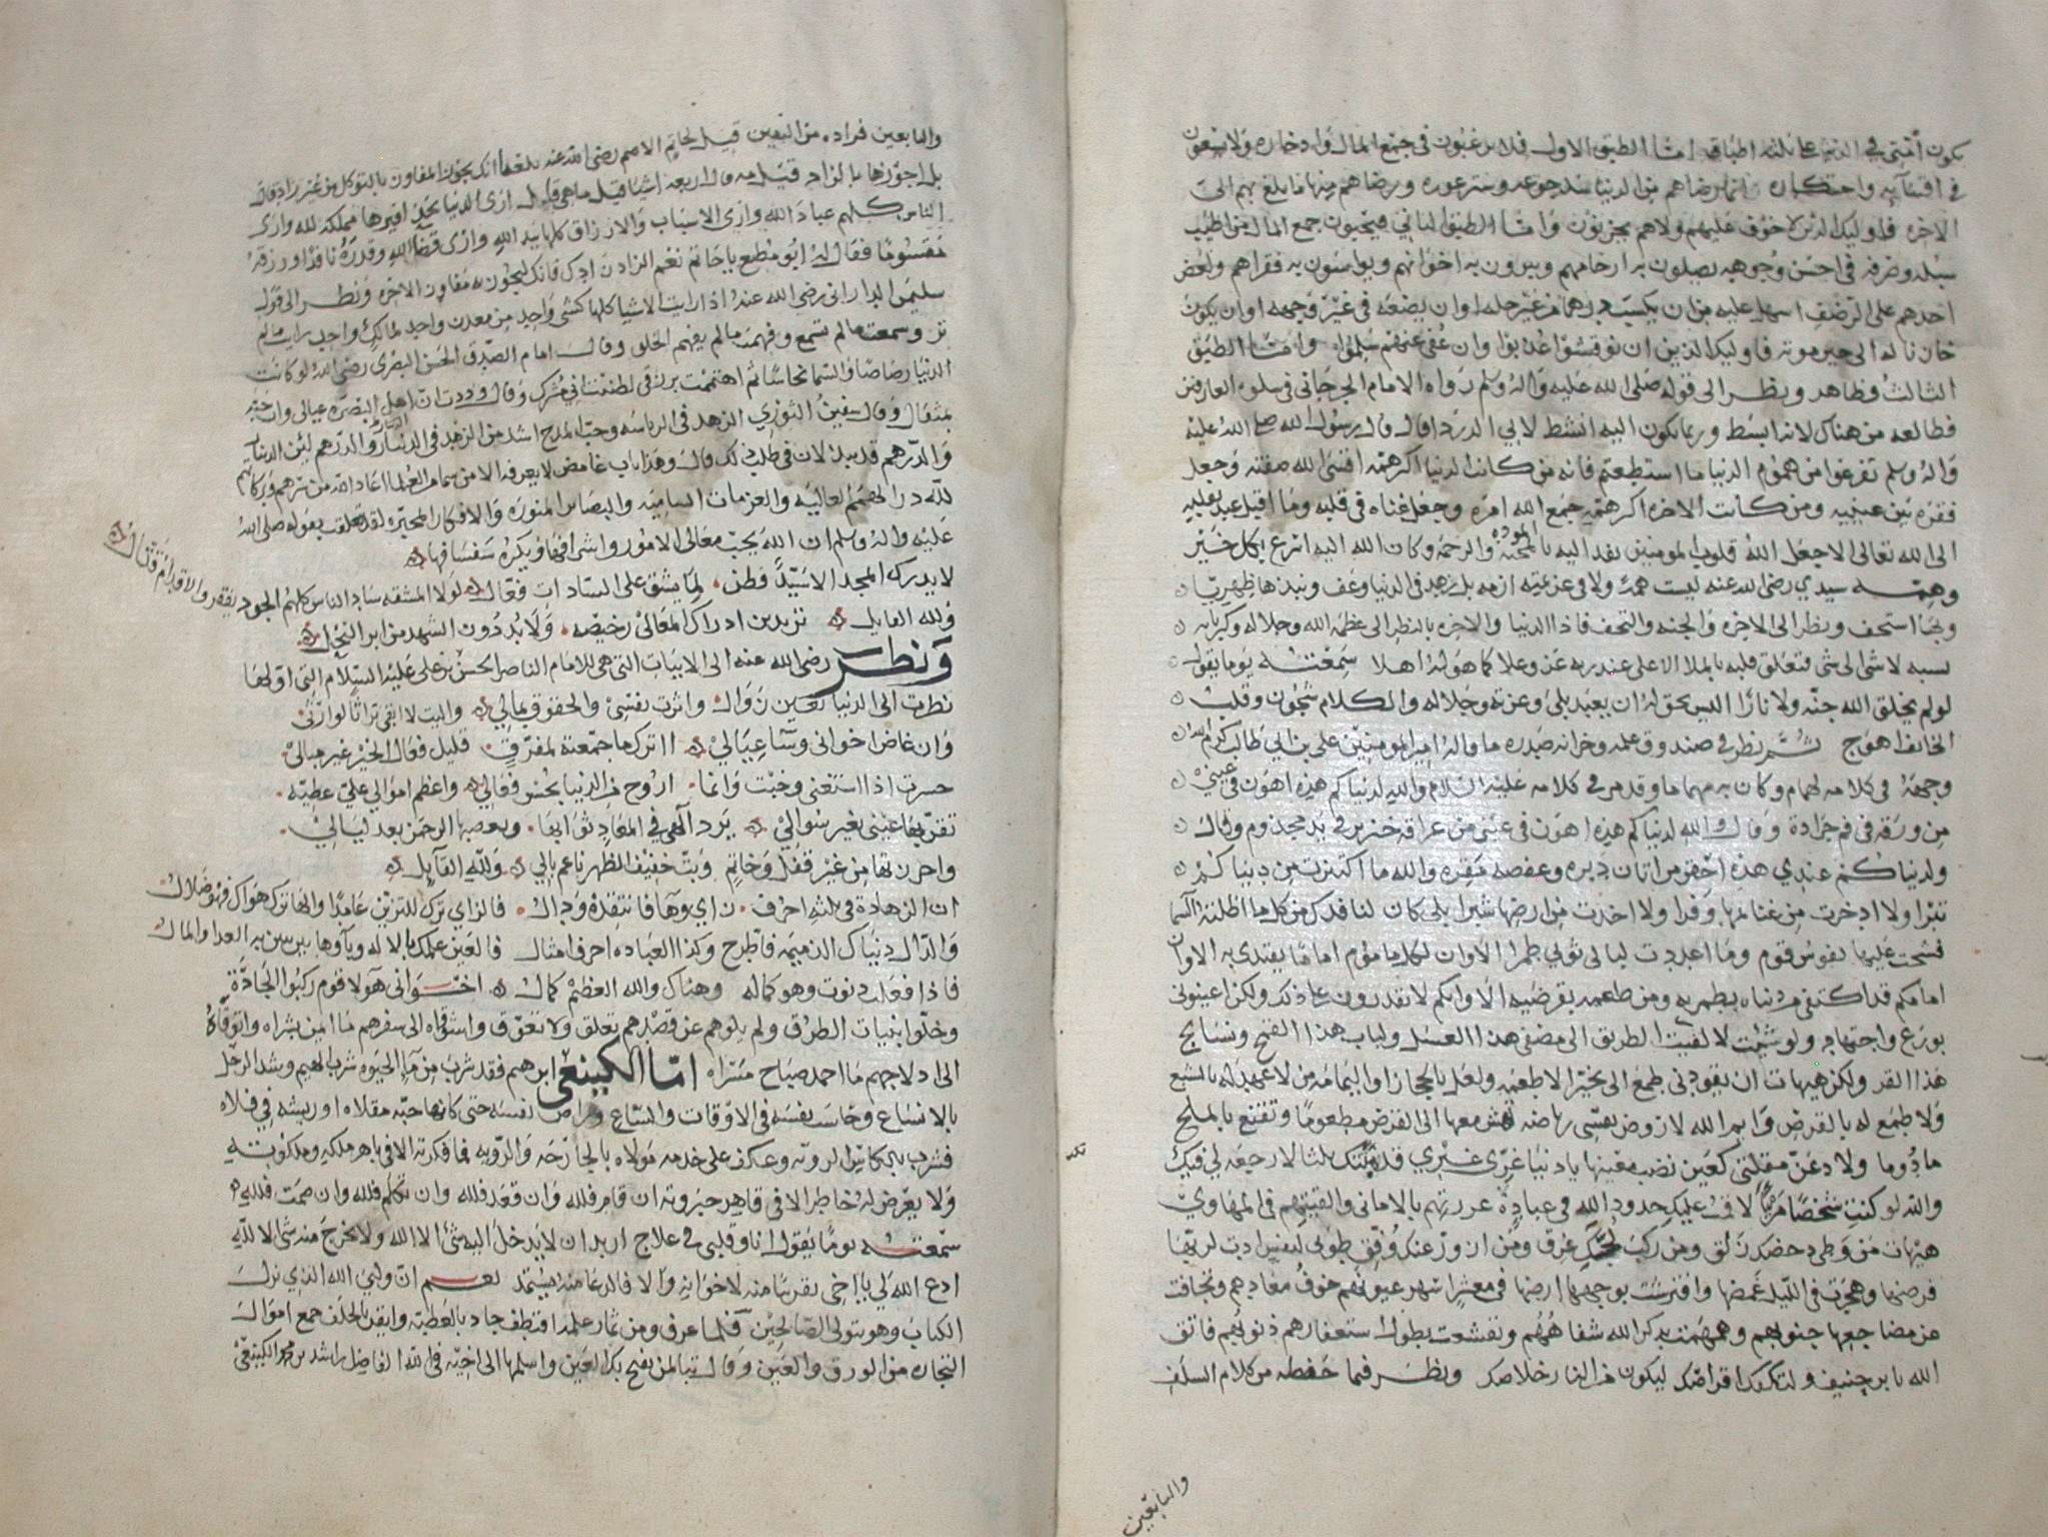 يكون أمتي في الدنيا على ثلثة اطباق اما الطبق الاول فلا يرغبون في جمع المال وادخاره ولا يسعون
في اقتنايه واحتكاره انما رضاهم من الدنيا سد جوعه وستر عوره ورضاهم منها ما بلغ بهم الى
الاخره فاوليك الذين لا خوف عليهم ولا هم يحزنون واما الطبق الثاني فيحبون جمع المال من اطيب
سبله وصرفه في احسن وجوهه يصلون به ارحامهم ويبرون به اخوانهم ويواسون به فقراهم ولعض
احدهم على الرضف اسهل عليه من ان يكتسب درهما من غير حله او ان يضعه في غير وجهه او ان يكون
خازنا له الى حين موته فاوليك الذين ان نوقشوا عذبوا وان عفي عنهم سلموا واما الطبق
الثالث وظاهر ونظر الى قوله صلى الله عليه واله وسلم رواه الامام الجرجاني في سلوه العارفين
فطالعه من هناك لانه ابسط وربما يكون اليه انشط لابي الدرداء قال قال رسول الله صلى الله عليه
واله وسلم تفرغوا من هموم الدنيا ما استطعتم فانه من كانت الدنيا اكبر همه افشى الله ضيعته وجعل
فقره بين عينيه ومن كانت الاخره اكبر همه جمع الله امره وجعل غناه في قلبه وما اقبل عبد بقلبه
الى الله تعالى الا جعل الله قلوب المومنين تفد اليه بالمودة والرحمة وكان الله اليه اسرع بكل خير
وهمته سيدي رضي الله عنه ليست همة ولا في عزيمته ازمه بل زهد في الدنيا وعف ونبذها ظهريا
ونظر الى الاخره والجنه والتحف فاذا الدنيا والاخره بالنظر الى عظمة الله وجلاله وكبريايه
نسبه لا شي الى شي فتعلق قلبه بالملا الاعلى عند ربه عز وعلا كما هو له اهلا سمعته يوما يقول
لو لم يخلق الله جنه ولا نارا اليس يحق له ان يعبد بلى وعزته وجلاله والكلام شجون وقلت
الخايف اهوج ثم نظر في صندوق علمه وخزانه صدره ما قاله امير المومنين علي بن ابي طالب كرم الله
وجهه في كلامه لهمام وكان به مهما ما وقد مر في كلامه عليه السلام والله لدنياكم هذه اهون في عيني
من ورقه في فم جرادة وقال والله لدنياكم هذه اهون في عيني من عراق خنزير في يد مجذوم وقال
ولدنياكم عندي هذه احقر من اتان دبره وعفصه مقره والله ما اكتنزت من دنياكم
تبرا ولا ادخرت من غنايمها وفرا ولا اخذت من ارضها شبرا بلى كان لنا فدك من كل ما اظلته السما
فشحت عليها نفوس قوم وما اعددت لبالي ثوبي طمرا الا وان لكل ماموم اماما يقتدي به الا وان
امامكم قد اكتفى من دنياه بطمريه ومن طعمه بقرصيه الا وانكم لا تقدرون على ذلك ولكن اعينوني
بورع واجتهاد ولو شئت لا لفيت الطريق الى مصفى هذا العسل ولباب هذا القمح ونسايج
هذا القز ولكن هيهات ان يقودني طمع الى تخير الاطعمه ولعل بالحجاز او اليمامه من لا عهد له بالشبع
ولا طمع له بالقرص وايم الله لاروضن نفسي رياضه تهش معها الى القرص مطعوما وتقنع بالملح
مادوما ولا دعن مقلتي كعين نضب معينها يا دنيا غري غيري قد بتتك ثلثا لا رجعه لي فيك
والله لو كنت شخصا مرييا لاقمت عليك حدود الله في عبادة غررتهم بالاماني والقيتهم في المهاوي
هيهات من وطي دحضك زلق ومن ركب لججك غرق ومن ازور عنك وفق طوبى لنفس ادت لربها
فرضها وهجرت في الليل غمضها وافترشت بوجهها ارضها في معشر اسهر عيونهم خوف معادهم وتجافت
عن مضاجعها جنوبهم وهمهمت بذكر الله شفاههم وتقشعت بطول استغفارهم ذنوبهم فاتق
الله يا بن حنيف ولتكفك اقراصك ليكون من النار خلاصك ونظر فيما حفظه من كلام السلف
والتابعين
والتابعين فزاده من اليقين قيل لحاتم الاصم رضي الله عنه بلغنا انك تجوز المفاوز بالتوكل من غير زاد قال
بل اجوزها بالزاد قيل مه قال اربعه اشيا قيل ما هي قال ارى الدنيا بحذافيرها مملكة لله وارى
الناس كلهم عباد الله وارى الاسباب والارزاق كلها بيد الله وارى قضا الله وقدره نافذا ورزقه
مقسوما فقال له ابو مطيع يا حاتم نعم الزاد زادك فانك لتجوز به مفاوز الاخره ونظر الى قول
سليمن الداراني رضي الله عنه اذا رايت الاشيا كلها كشي واحد من معدن واحد لمالك واحد رايت ما لم
تر وسمعت ما لم تسمع وفهمت ما لم يفهم الخلق وقال امام الصدق الحسن البصري رضي الله لو كانت
الدنيا رصاصا والسما نحاسا ثم اهتممت برزقي لظننت اني مشرك وقال وددت ان اهل البصره عيالي وان حبه
بمثقال وقال سفين الثوري الزهد في الرياسه وحب المدح اشد من الزهد في الدينار والدرهم لان الدينار
والدرهم قد يبذلان في طلب ذلك قال وهذا باب غامض لا يعرفه الا من سما من العلما اعاد الله من سرهم وبركاتهم
لله در الهمم العاليه والعزمات الساميه والبصاير المنوره والافكار المحيره لقد تعلقت بقوله صلى الله
عليه واله وسلم ان الله يحب معالي الامور واشرافها ويكره سفسافها
لا يدرك المجد الا سيد فطن لما يشق على السادات فعال لولا المشقه ساد الناس كلهم الجود يفقر والاقدام قتال
ولله القايل تريدين ادراك المعالي رخيصه ولا بد دون الشهد من ابر النحل
ونظر رضي الله عنه الى الابيات التي هي للامام الناصر الحسن بن علي عليه السلام التي اولها
نظرت الى الدنيا بعين زوال واثرت نفسي والحقوق بمالي واليت لا ابقي تراثا لوارثي
وان غاض اخواني وسا عيالي ااترك ما جمعته لمفرق قليل فعال الخير غير مبالي
حسرت اذا استغنى وخبت وانما اروح من الدنيا بحسن فعالي واعظم اموالي علي عطيه
تقر بها عيني بغير سوالي يرد الهي في المعاد ثوابها ويعصبها الرحمن بعد ليالي
واحرزتها من غير قفل وخاتم وبت خفيف الظهر ناعم بالي ولله القايل
ان الزهادة في ثلثه احرف زاي وها فانتقده ودال فالزاي ترك للتزين عامدا والها ترك هواك فهو ضلال
والدال دنياك الذميمه فاطرح وكذا العباده احرف امثال فالعين علمك بالاله وباوها
فاذا فعلت دنوت وهو كماله وهناك والله العظيم كمال اخواني هولا قوم ركبوا الجادة
وخلوا بنيات الطرق ولم يلوهم عن قصدهم تعلق ولا تعرق واشوقاه الى سفرهم ما ايمن بشراه واتوقاه
الى ادلاجهم ما احمد صباح مسراه اما الكينعي ابرهيم فقد شرب من ما الحيوه شرب الهيم وشد الرحل
بالانساع وحاسب نفسه في الاوقات والساع وراض نفسه حتى كانها حبه مقلاه او ريشه في فلاه
فشرب بالكاس الرويه وعكف على خدمه مولاه بالجارحه والرويه فما فكرته الا في باهر ملكه وملكوته
ولا يعرض له خاطر الا في قاهر جبروته ان قام فلله وان قعد فلله وان تكلم فلله وان صمت فلله
سمعته يوما يقول انا وقلبي في علاج اريد ان لا يدخل اليه شي الا الله ولا يخرج منه شي الا لله
ادع الله لي يا اخي تقربا منه لاخوانه والا فالدعا منه يستمد نعم ان وليي الله الذي نزل
الكتاب وهو يتولى الصالحين فلما عرف ومن ثمار علمه اقتطف جاد بالعطيه وايقن بالخلف جمع اموال
التجاره من الورق والعين وقال تبا لمن يفرح بكذا العين واسلمها الى اخيه في الله الفاضل راشد بن محمد الكينعي